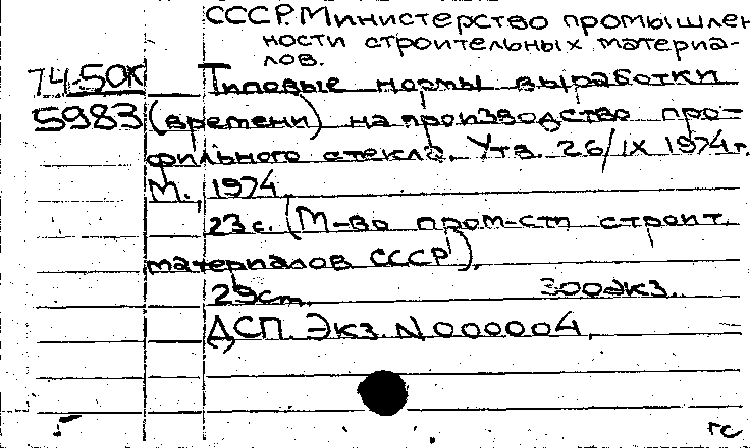 СССР. Министерство промышлен-
ности строительных материа-
лов.
74-50к Типовые нормы выработки
5983 (времени) на производство про-
фильного стекла. Утв. 26/IX 1974 г.
М., 1974.
23 с. (М-во пром-сти строит.
материалов СССР).
29 см. 300 экз.
ДСП. Экз. N 000004.
гс